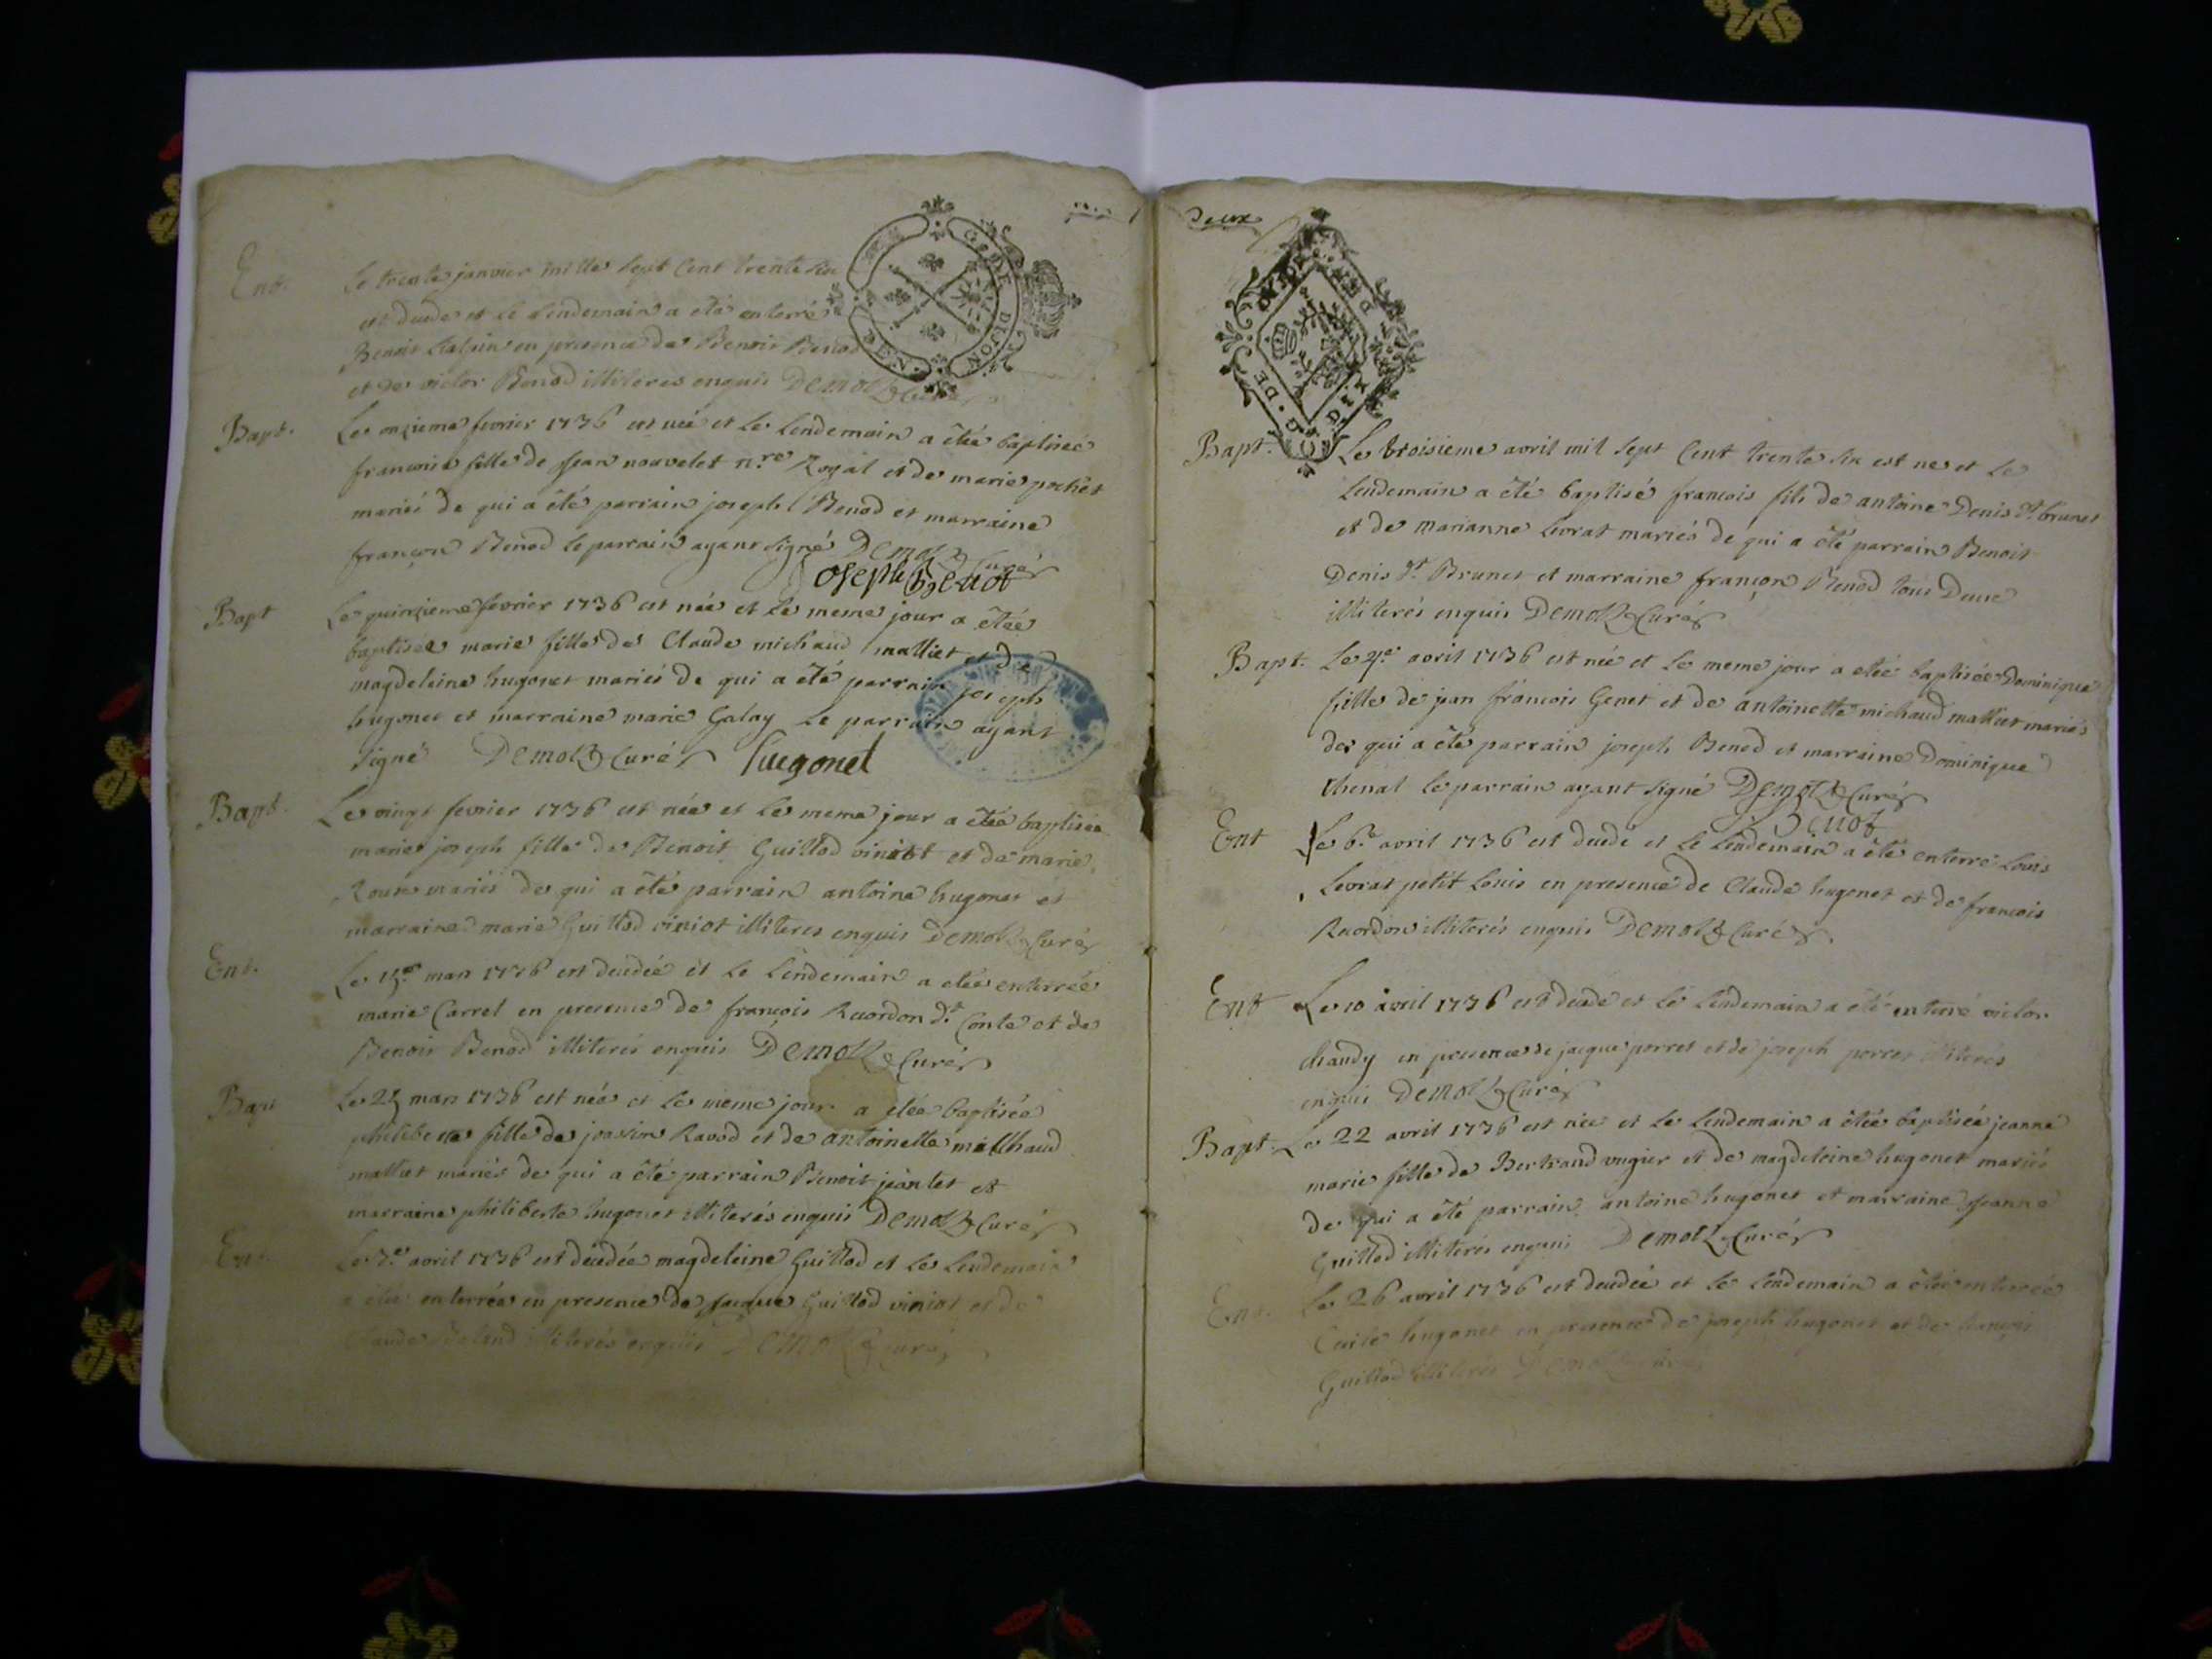 Ent. Le trente janvier mille sept Cent trente six
est decede et le lendemain a eté enterré
Benoit en presence de Benoit Benod
et de victor Benod illiteres enquis Demolz Curé
Bapt. Le onzieme fevrier 1736 est née et le lendemain a étée baptiseé
francoise fille de Jean nouvelet n.re Royal et de marie pochet
mariés de qui a été parrain joseph Benod et marraine
françon Benod le parrain ayant signé Demolz Curé
Joseph Benot
Bapt Le quinzieme fevrier 1736 est née et le meme jour a étée
baptisee marie fille de Claude michaud malliet et de
magdeleine hugonet mariés de qui a été parrain joseph
hugonet et marraine marie Galay le parrain ayant
signé Demolz Curé hugonet
Bapt. Le vingt fevrier 1736 est née et le meme jour a étée baptisée
marie joseph fille de Benoit Guillod viniot et de marie
Roux mariés de qui a été parrain antoine hugonet et
marraine marie Guillod viniot illiteres enquis Demolz Curé
Ent. Le mars 1736 est decedée et le lendemain a etée enterrée
marie Carrel en presence de françois Ruordon d.t Conte et de
Benoit Benod illiterés enquis Demolz Curé
Bapt Le mars 1736 est née et le meme jour a etée baptisée
philiberte fille de joachim Ravod et de antoinette michaud
malliet mariés de qui a été parrain Benoit jeantet et
marraine philiberte hugonet illiterés enquis Demolz Curé
Ent. Le avril 1736 est decedée magdeleine Guillod et le lendemain
a etée enterrée en presence de jacque Guillod viniot et de
Claude illiterés enquis Demolz Curé
Deux
G. DE DIJON
Bapt. Le troisieme avril mil sept Cent trente six est ne et le
lendemain a été baptisé francois fils de antoine Denis d.t brunet
et de marianne levrat mariés de qui a été parrain Benoit
Denis d.t Brunet et marraine françon Benod tous Deux
illiterés enquis Demolz Curé
Bapt. Le 4.e avril 1736 est née et le meme jour a etée baptisée Dominique
fille de jean françois Genet et de antoinette michaud malliet mariés
de qui a été parrain joseph Benod et marraine Dominique
chenal le parrain ayant signé Demolz Curé
J Benot
Ent Le 6.e avril 1736 est decedé et le lendemain a été enterré Louis
levrat petit Louis en presence de Claude hugonet et de francois
Ruordon illiterés enquis Demolz Curé
Ent Le 10 avril 1736 est decedé et le lendemain a été enterré victor
chaudy en presence de jacque perret et de joseph perret illiterés
enquis Demolz Curé
Bapt. Le 22 avril 1736 est née et le lendemain a étée baptisée jeanne
marie fille de Bertrand vugier et de magdeleine hugonet mariés
de qui a été parrain antoine hugonet et marraine Jeanne
Guillod illiterés enquis Demolz Curé
Ent. Le 26 avril 1736 est decedée et le lendemain a étée enterrée
Cecile hugonet en presence de joseph hugonet et de françois
Guillod illiterés Demolz Curé